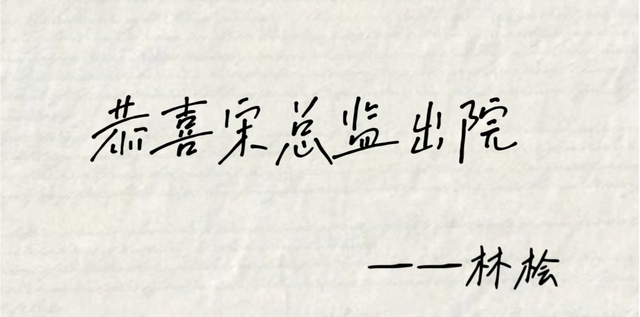 恭喜宋总监出院
——林桧